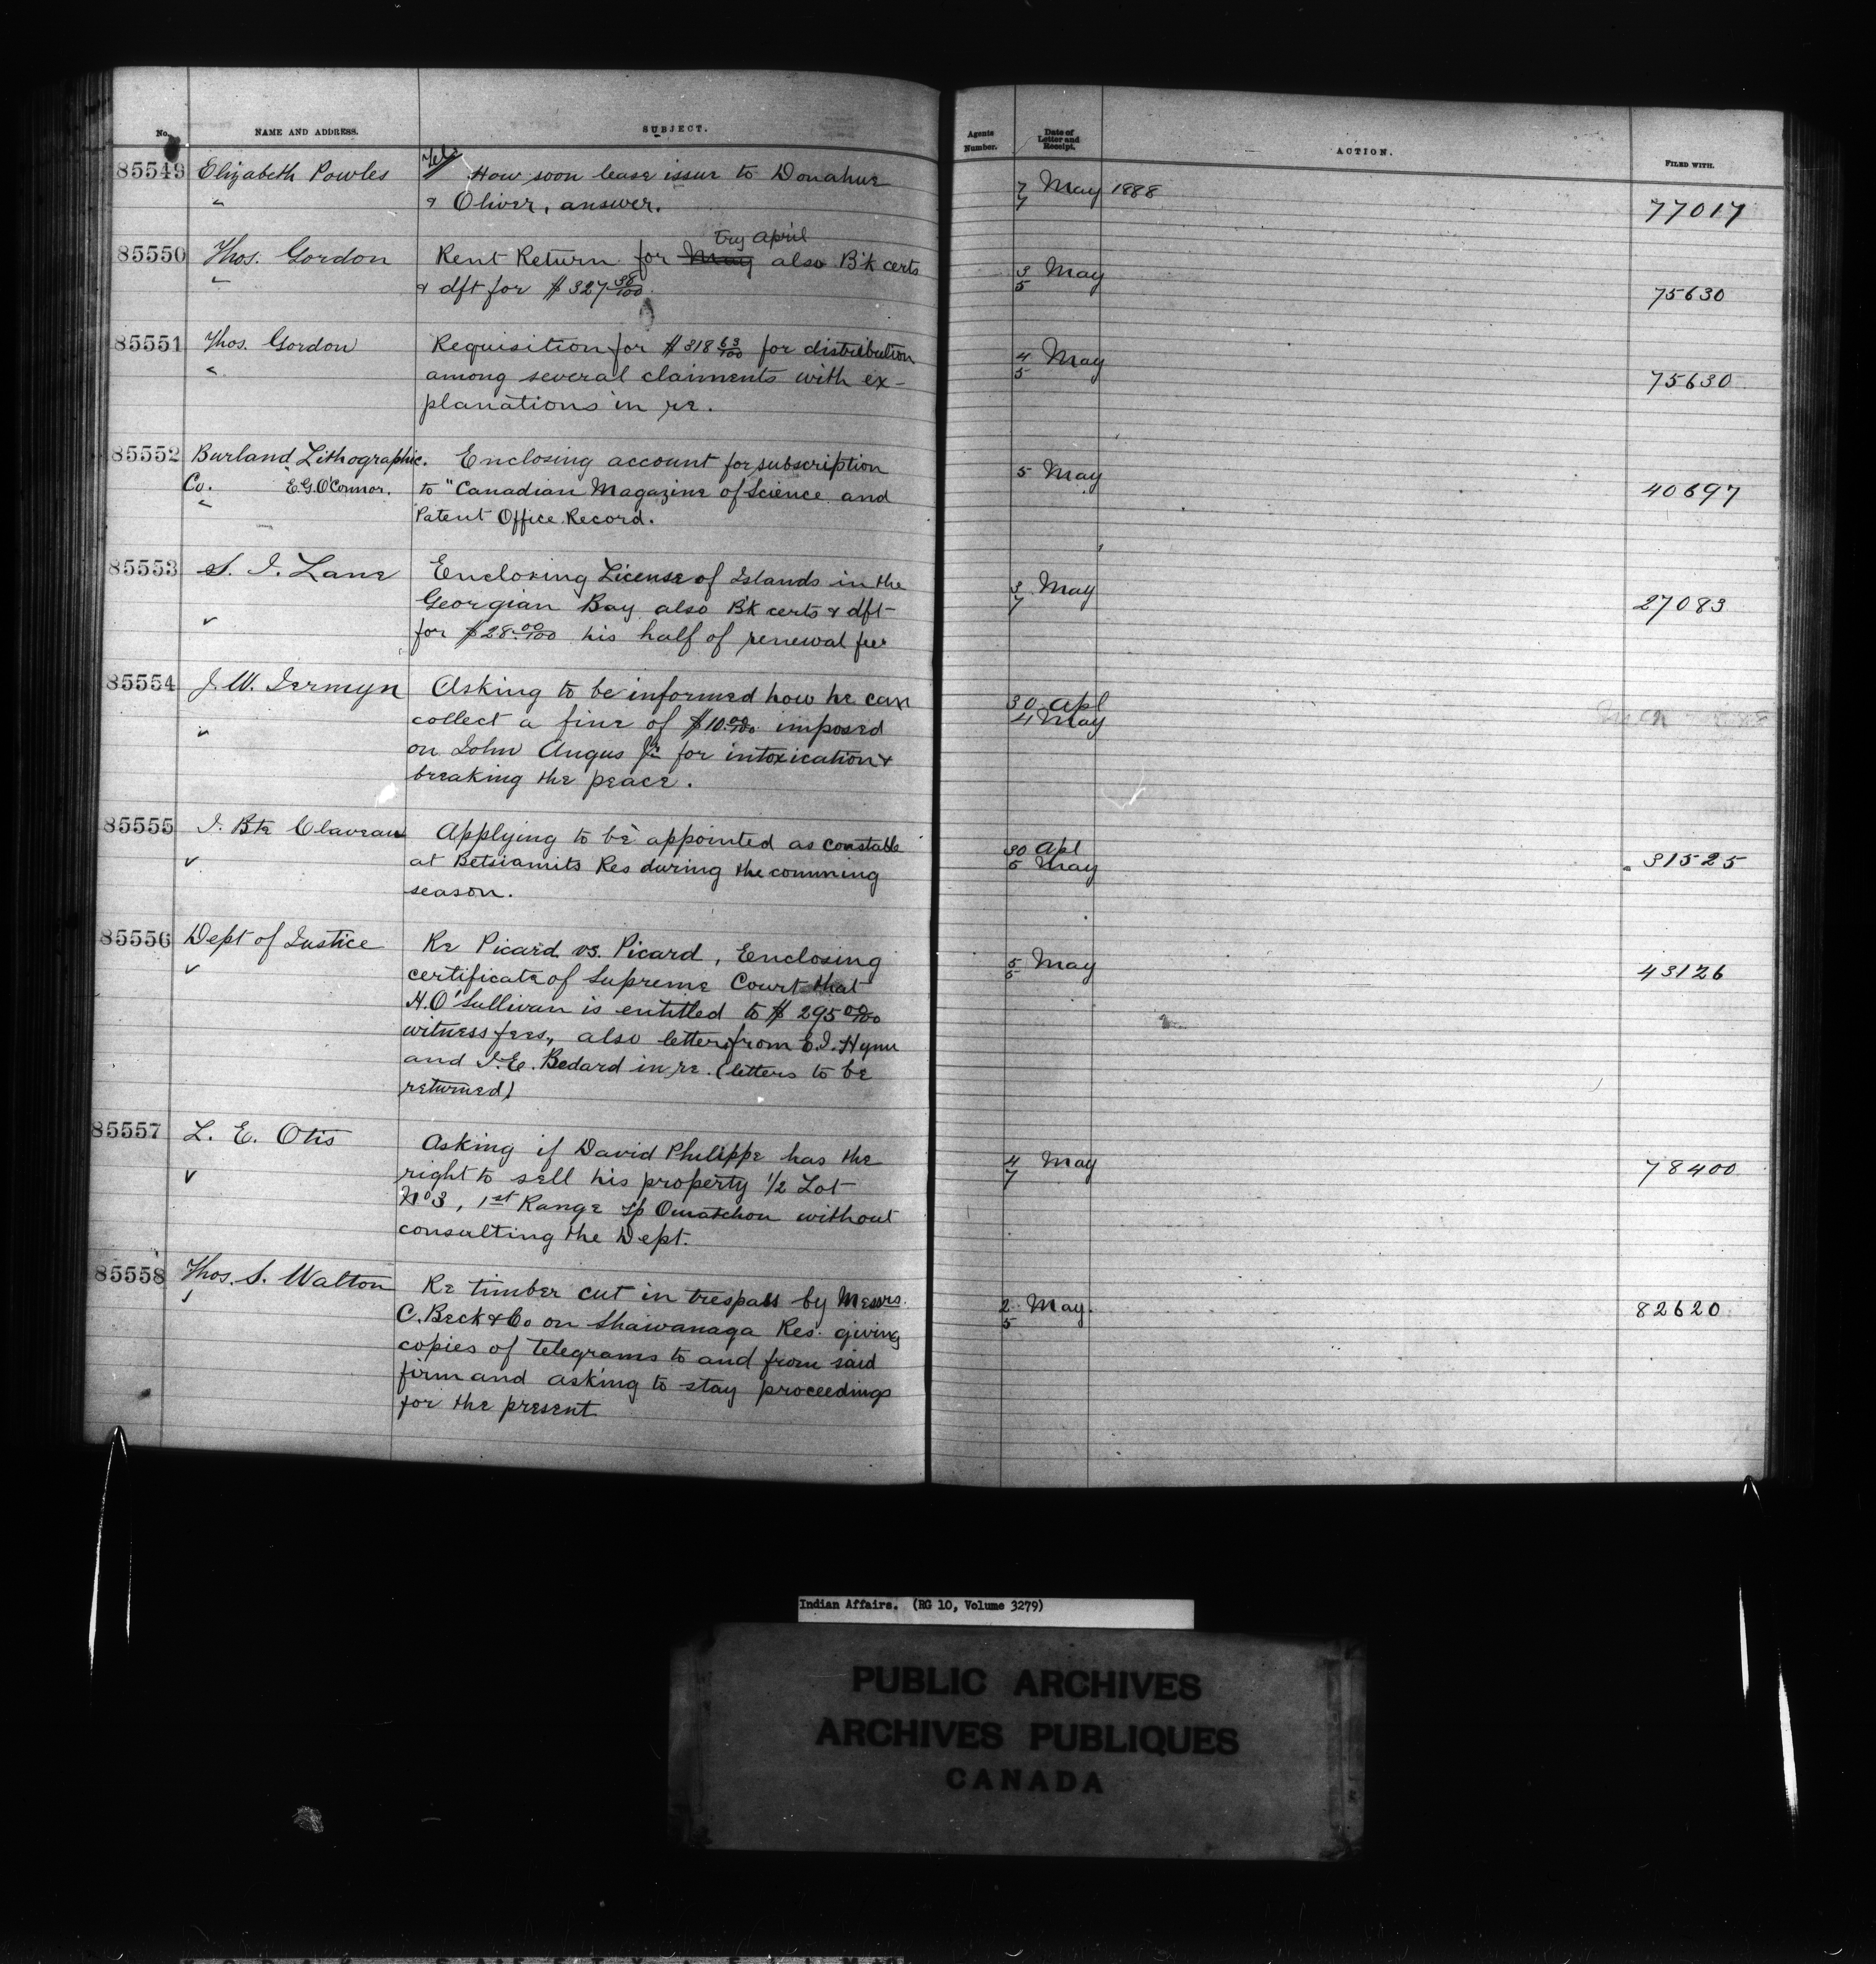 No. NAME AND ADDRESS. SUBJECT. Agents Number. Date of Letter and Receipt. ACTION. FILED WITH.
85549 Elizabeth Powles How soon lease issue to Donahue 7 May 1888
& Oliver, answer. 7 77017
April
85550 Thos. Gordon Rent Return for May also B'k certs 3 May
& dft for $327 38/100. 5 75630
85551 Thos. Gordon Requisition for $318 63/100 for distribution 4 May
among several claiments with ex- 5 75630
planations in re.
85552 Burland Lithographic. Enclosing account for subscription 5 May
Co. E.G. O'Connor. to "Canadian Magazine of Science and 40697
Patent Office Record.
85553 S. J. Lane Enclosing License of Islands in the 3 May
Georgian Bay also B'k certs & dft 7 27083
for $28.00/100 his half of renewal fee
85554 J. W. Jermyn Asking to be informed how he can 30 Apl
collect a fine of $10.00/100 imposed 4 May
on John Angus Jr. for intoxication &
breaking the peace.
85555 J. Bte Claveau Applying to be appointed as constable 30 Apl
at Betsiamits Res during the comming 5 May 31525
season.
85556 Dept of Justice Re Picard vs. Picard, Enclosing 5 May
certificate of Supreme Court that 5 43126
H. O'Sullivan is entitled to $295 00/100
witness fees, also letters from E. J. Hynn
and J. E. Bedard in re. (letters to be
returned)
85557 L. E. Otis Asking if David Philippe has the 4 May
right to sell his property 1/2 Lot 7 78400
No 3, 1st Range Tp Ouiatchou without
consulting the Dept.
85558 Thos. S. Walton Re timber cut in trespass by Messrs. 2 May.
C. Beck & Co on Shawanaga Res. giving 5 82620
copies of telegrams to and from said
firm and asking to stay proceedings
for the present
Indian Affairs. (RG 10, Volume 3279)
PUBLIC ARCHIVES
ARCHIVES PUBLIQUES
CANADA